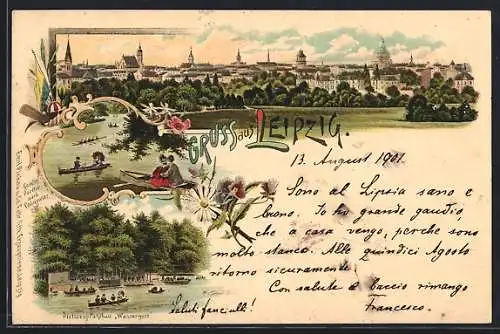 GRUSS aus LEIPZIG.
13. August 1901.
Sono al Lipsia sano e
buono. Io ho grande gaudio,
che a casa vengo, perche sono
molto stanco. Alle quindici Agosto
ritorno sicuramente.
Con salute a baccio rimango
Francesco.
Saluti fanciulli!